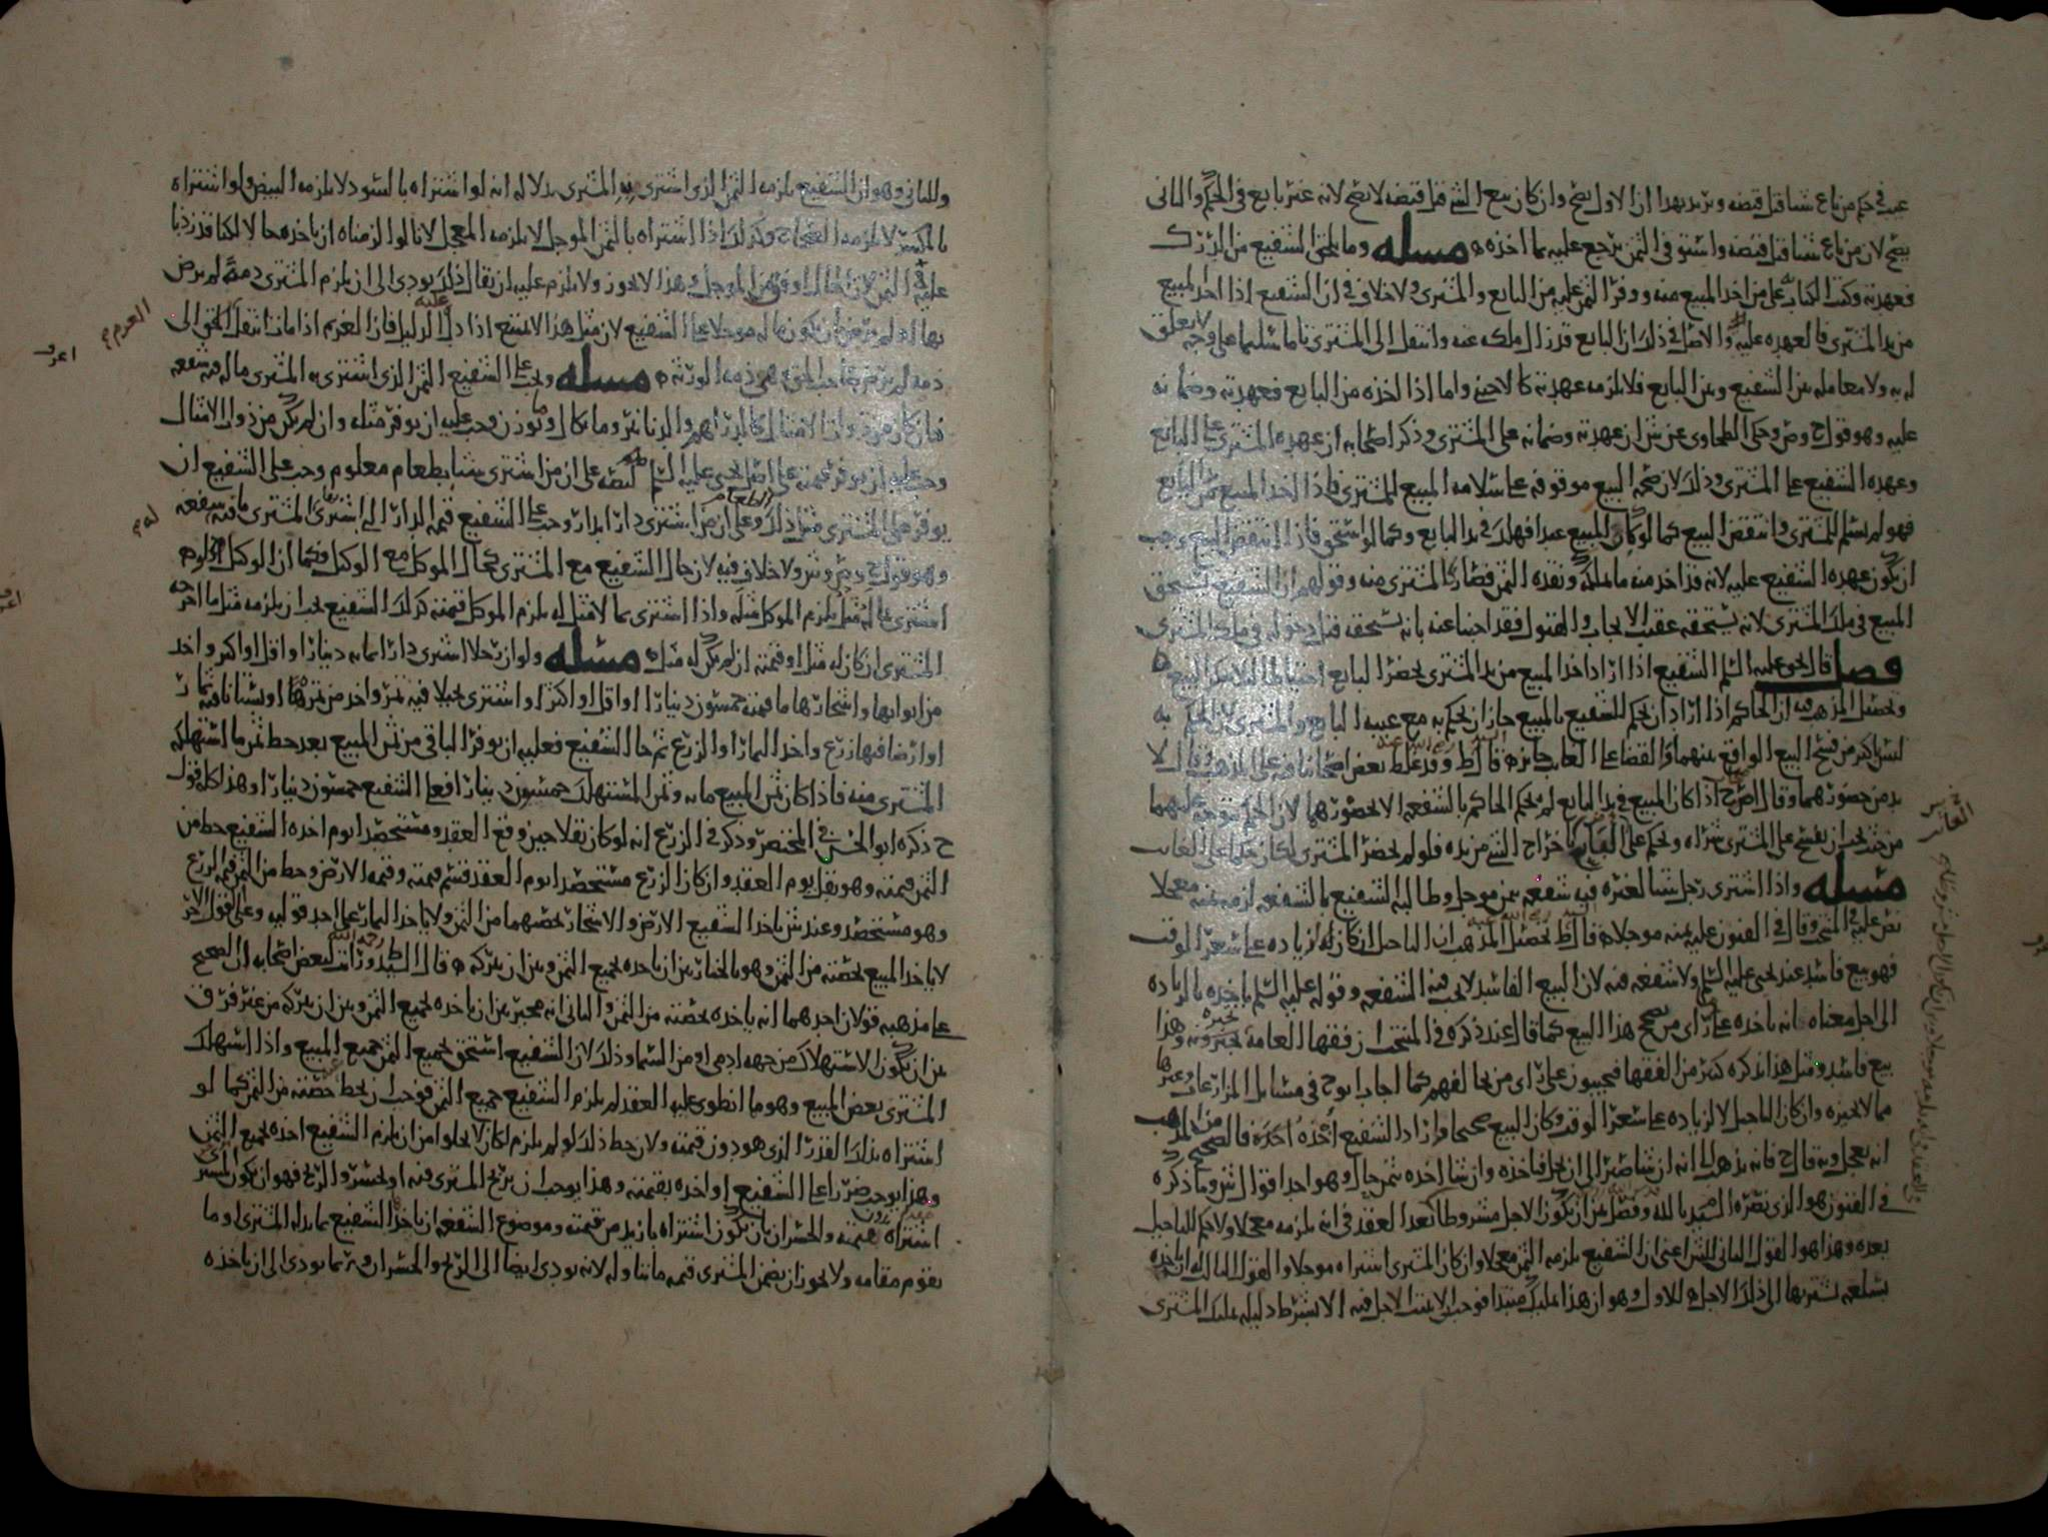 عيب في حكم من باع شيئا قبل قبضه ويريد بهذا ان الاول يصح وان كان بيع الشي قبل قبضه لا يصح لانه غير بايع في الحكم والثاني
يصح لان من باع شيئا قبل قبضه واستوفى الثمن يرجع عليه بما اخذه ه مسله وما يلحق الشفيع من الدرك
فعهدته وكتب الكتاب على من اخذ المبيع منه ووفر الثمن عليه من البايع والمشترى ولا خلاف في ان الشفيع اذا اخذ المبيع
من يد المشترى فالعهده عليه والاصل في ذلك ان البايع قد زال ملكه عنه وانتقل الى المشترى تاما سليما على وجه لا يعلق
له به ولا معامله بين الشفيع وبين البايع فلا يلزمه عهدته كالاجنبي واما اذا اخذه من البايع فعهدته وضمانه
عليه وهو قول ح وص وحكى الطحاوى عن ش ان عهدته وضمانه على المشترى وذكر اصحابه ان عهده المشترى على البايع
وعهده الشفيع على المشترى وذلك لان صحه البيع موقوفه على سلامه المبيع للمشترى فاذا اخذ المبيع من البايع
فهو لم يسلم للمشترى فانتقض البيع كما لو كان المبيع عبدا فهلك في يد البايع وكما لو استحق فاذا انتقض البيع وجب
ان يكون عهده الشفيع عليه لانه قد اخذ منه ما ملكه ونقده الثمن فصار كالمشترى منه وقولهم ان الشفيع يستحق
المبيع في ملك المشترى لانه يستحقه عقيب الايجاب والقبول فقد اجبنا عنه بانه يستحقه قبل دخوله في ملك المشترى
فصل قال يحيى عليه السلم الشفيع اذا اراد اخذ المبيع من يد المشترى بحضر البايع احتياطا لئلا ينكر البيع ه
وتحصيل المذهب فيه ان الحاكم اذا اراد ان يحكم للشفيع بالمبيع جاز ان يحكم به مع غيبه البايع والمشترى لان الحكم به
ليس اكثر من فسخ البيع الواقع بينهما والقضا على الغايب جايز ه قال ط وقد غلط بعض اصحابنا فيه على المذهب وقال لا
بد من حضورهما وقال اصح ح اذا كان المبيع في يد البايع لم يحكم الحاكم بالشفعه الا بحضورهما لان الحكم يتوجه عليهما
من حيث يجب ان يفسخ على المشترى شراه ويحكم على البايع باخراج الشي من يده فلو لم يحضر المشترى لكان حكما على الغايب
مسله واذا اشترى رجل شيئا لغيره فيه شفعه بثمن موجل وطالبه الشفيع بالشفعه لزمه ثمنه معجلا
نص عليه في المنتخب وقال في الفنون عليه ثمنه موجلا ه قال ط تحصيل المذهب ان التاجيل ان كان لزياده على سعر الوقت
فهو بيع فاسد عند يحيى عليه السلم ولا شفعه فيه لان البيع الفاسد لا يجب فيه الشفعه وقوله عليه السلم ياخذه بالزياده
الى اجل معناه انه ياخذه على راى من يصحح هذا البيع كما قال عند ذكره في المنتخب ان فقها العامه يجيزونه وهذا
بيع فاسد ومثل هذا يذكره كثير من الفقها فيجيبون على راى من يخالفهم كما اجاب ابو ح في مسايل المزارعات وغيرها
مما لا يجيزه وان كان التاجيل لا لزياده على سعر الوقت وكان البيع صحيحا واراد الشفيع اخذه اخذه فالصحيح من المذهب
انه يعجل وبه قال ح فانه يذهب الى انه ان شا صبر الى ان يحل فياخذه وان شا اخذه بثمن حال وهو احد اقوال ش وما ذكره
في الفنون هو الذى نصره السيد بالله وفصل بين ان يكون الاجل مشروطا بعد العقد في انه يلزمه معجلا ولا حكم للتاجيل
بعده وهذا هو القول الثاني للش اعنى ان الشفيع يلزمه الثمن معجلا وان كان المشترى اشتراه موجلا والقول الثالث له ان ياخذه
بسلعه تشترىها الى ذلك الاجل ه للاول وهو ان هذا تمليك مبتدا فوجب ان لا يثبت الاجل فيه الا بشرط دليله تمليك المشترى
وللثاني وهو ان الشفيع يلزمه الثمن الذى اشترى به المشترى بدلاله انه لو اشتراه بالسود لا يلزمه البيض ولو اشتراه
بالمكسر لا يلزمه الصحاح وكذلك اذا اشتراه بالثمن الموجل لا يلزمه المعجل لانا لو الزمناه ان ياخذه حالا لكنا قد زدنا
عليه في الثمن لان الحال اوفى من الموجل وهذا لا يجوز ولا يلزم عليه ان يقال ذلك يودى الى ان يلزم المشترى ذمه لم يرض
بها انه لم يرض ان يكون ماله موجلا على الشفيع لان مثل هذا لا يمتنع اذا دل عليه الدليل فان الغريم اذا مات انتقل الحق الى
ذمه لم يرض صاحب الحق هي ذمه الورثه ه مسله ويجب على الشفيع الثمن الذى اشترى به المشترى ما له فيه شفعه
فان كان من ذوات الامثال كالدراهم والدنانير وما يكال او يوزن وجب عليه ان يوفر مثله وان لم يكن من ذوات الامثال
وجب عليه ان يوفر قيمته على اصل يحيى عليه السلم لنصه على ان من اشترى شيئا بطعام معلوم وجب على الشفيع ان
يوفر على المشترى مثل ذلك الطعام وعلى ان من اشترى دارا بدار وجب على الشفيع قيمه الدار التي اشترى بها المشترى ما فيه شفعه
وهو قول ح وص وش ولا خلاف فيه لان حال الشفيع مع المشترى كحال الموكل مع الوكيل فكما ان الوكيل
اشترى بما له مثل يلزم الموكل مثله واذا اشترى بما لا مثل له يلزم الموكل قيمته كذلك الشفيع يجب ان يلزمه مثل ما اخرجه
المشترى ان كان له مثل او قيمته ان لم يكن له مثل ه مسله ولو ان رجلا اشترى دارا بمايه دينار او اقل او اكثر واخذ
من ابوابها واشجارها ما قيمته خمسون دينارا او اقل او اكثر او اشترى نخيلا فيه ثمر واخذ من ثمرها او بستانا فيه ثمار
او ارضا فيها زرع واخذ الثمار او الزرع ثم جا الشفيع فعليه ان يوفر الباقي من ثمن المبيع بعد حط ثمن ما استهلكه
المشترى منه فاذا كان ثمن المبيع مايه وثمن المستهلك خمسون دينارا فعلى الشفيع خمسون دينارا وهذا كله قول
ح ذكره ابو الحسن في المختصر وذكر في الزرع انه لو كان بقلا حين وقع العقد ومستحصدا يوم اخذه الشفيع حط من
الثمن قيمته وهو بقل يوم العقد وان كان الزرع مستحصدا يوم العقد قسم قيمته وقيمه الارض وحط من الثمن قيمه الزرع
وهو مستحصد وعند ش ياخذ الشفيع الارض والاشجار بحصتهما من الثمن ولا ياخذ الثمار على احد قوليه وعلى القول الاخر
لا ياخذ المبيع بحصته من الثمن وهو بالخيار بين ان ياخذه بجميع الثمن وبين ان يتركه ه قال السيد ط رحمه الله ورايت لبعض اصحابه ان الصحيح
على مذهبه قولان احدهما انه ياخذه بحصته من الثمن والثاني انه مخير بين ان ياخذه بجميع الثمن وبين ان يتركه من غير فرق
بين ان يكون الاستهلاك من جهه ادمي او من السما وذلك لان الشفيع استحق بجميع الثمن جميع المبيع واذا استهلك
المشترى بعض المبيع وهو ما انطوى عليه العقد لم يلزم الشفيع جميع الثمن فوجب ان يحط حصته من الثمن كما لو
اشتراه بذلك القدر الذى هو دون قيمته ولان حط ذلك لو لم يلزم لكان لا يخلوا من ان يلزم الشفيع اخذه بجميع الثمن
وهذا يوجب ضررا على الشفيع او اخذه بقيمته وهذا يوجب ان يربح المشترى فيه او يخسر والربح فهو ان يكون المشترى
اشتراه بدون قيمته والخسران بان يكون اشتراه بازيد من قيمته وموضوع الشفعه ان ياخذ الشفيع بما بذله المشترى او ما
يقوم مقامه ولا يجوز ان يضمن المشترى قيمه ما تناوله لانه يودى ايضا الى الربح والخسران وربما يودى الى ان ياخذه